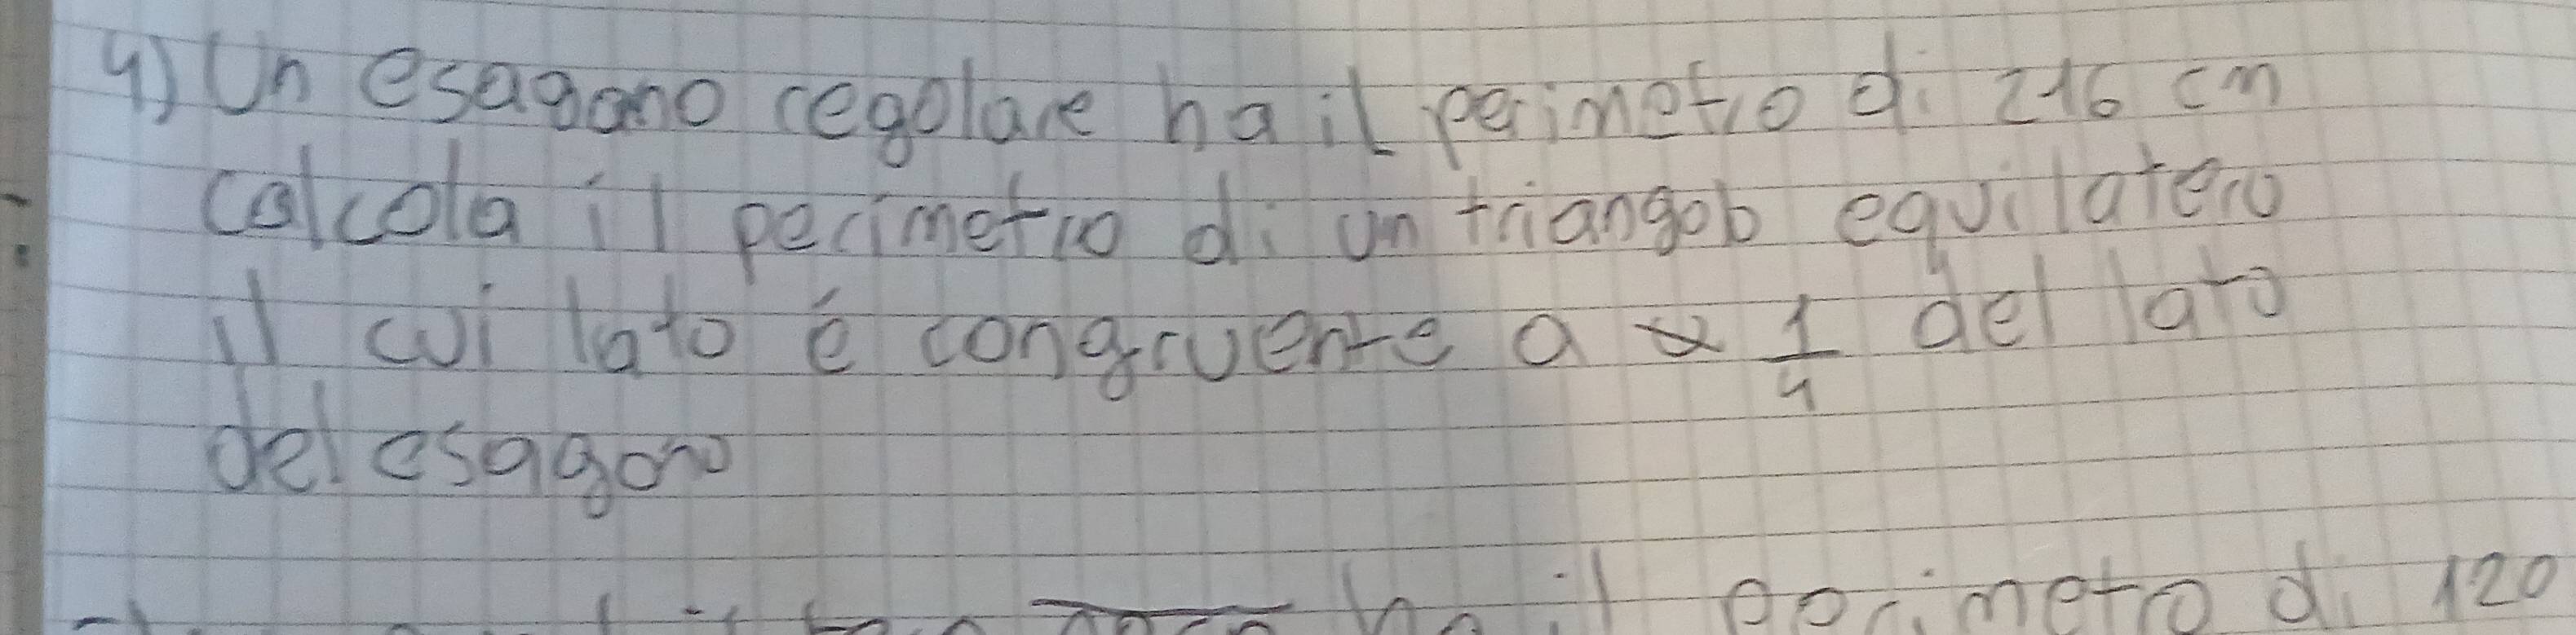 4) Un esagono regolare ha il perimetro di 216 cm
calcola il perimetro di un triangolo equilatero
il cui lato è congruente a 1/4 del lato
del esagono
ha il perimetro di 120